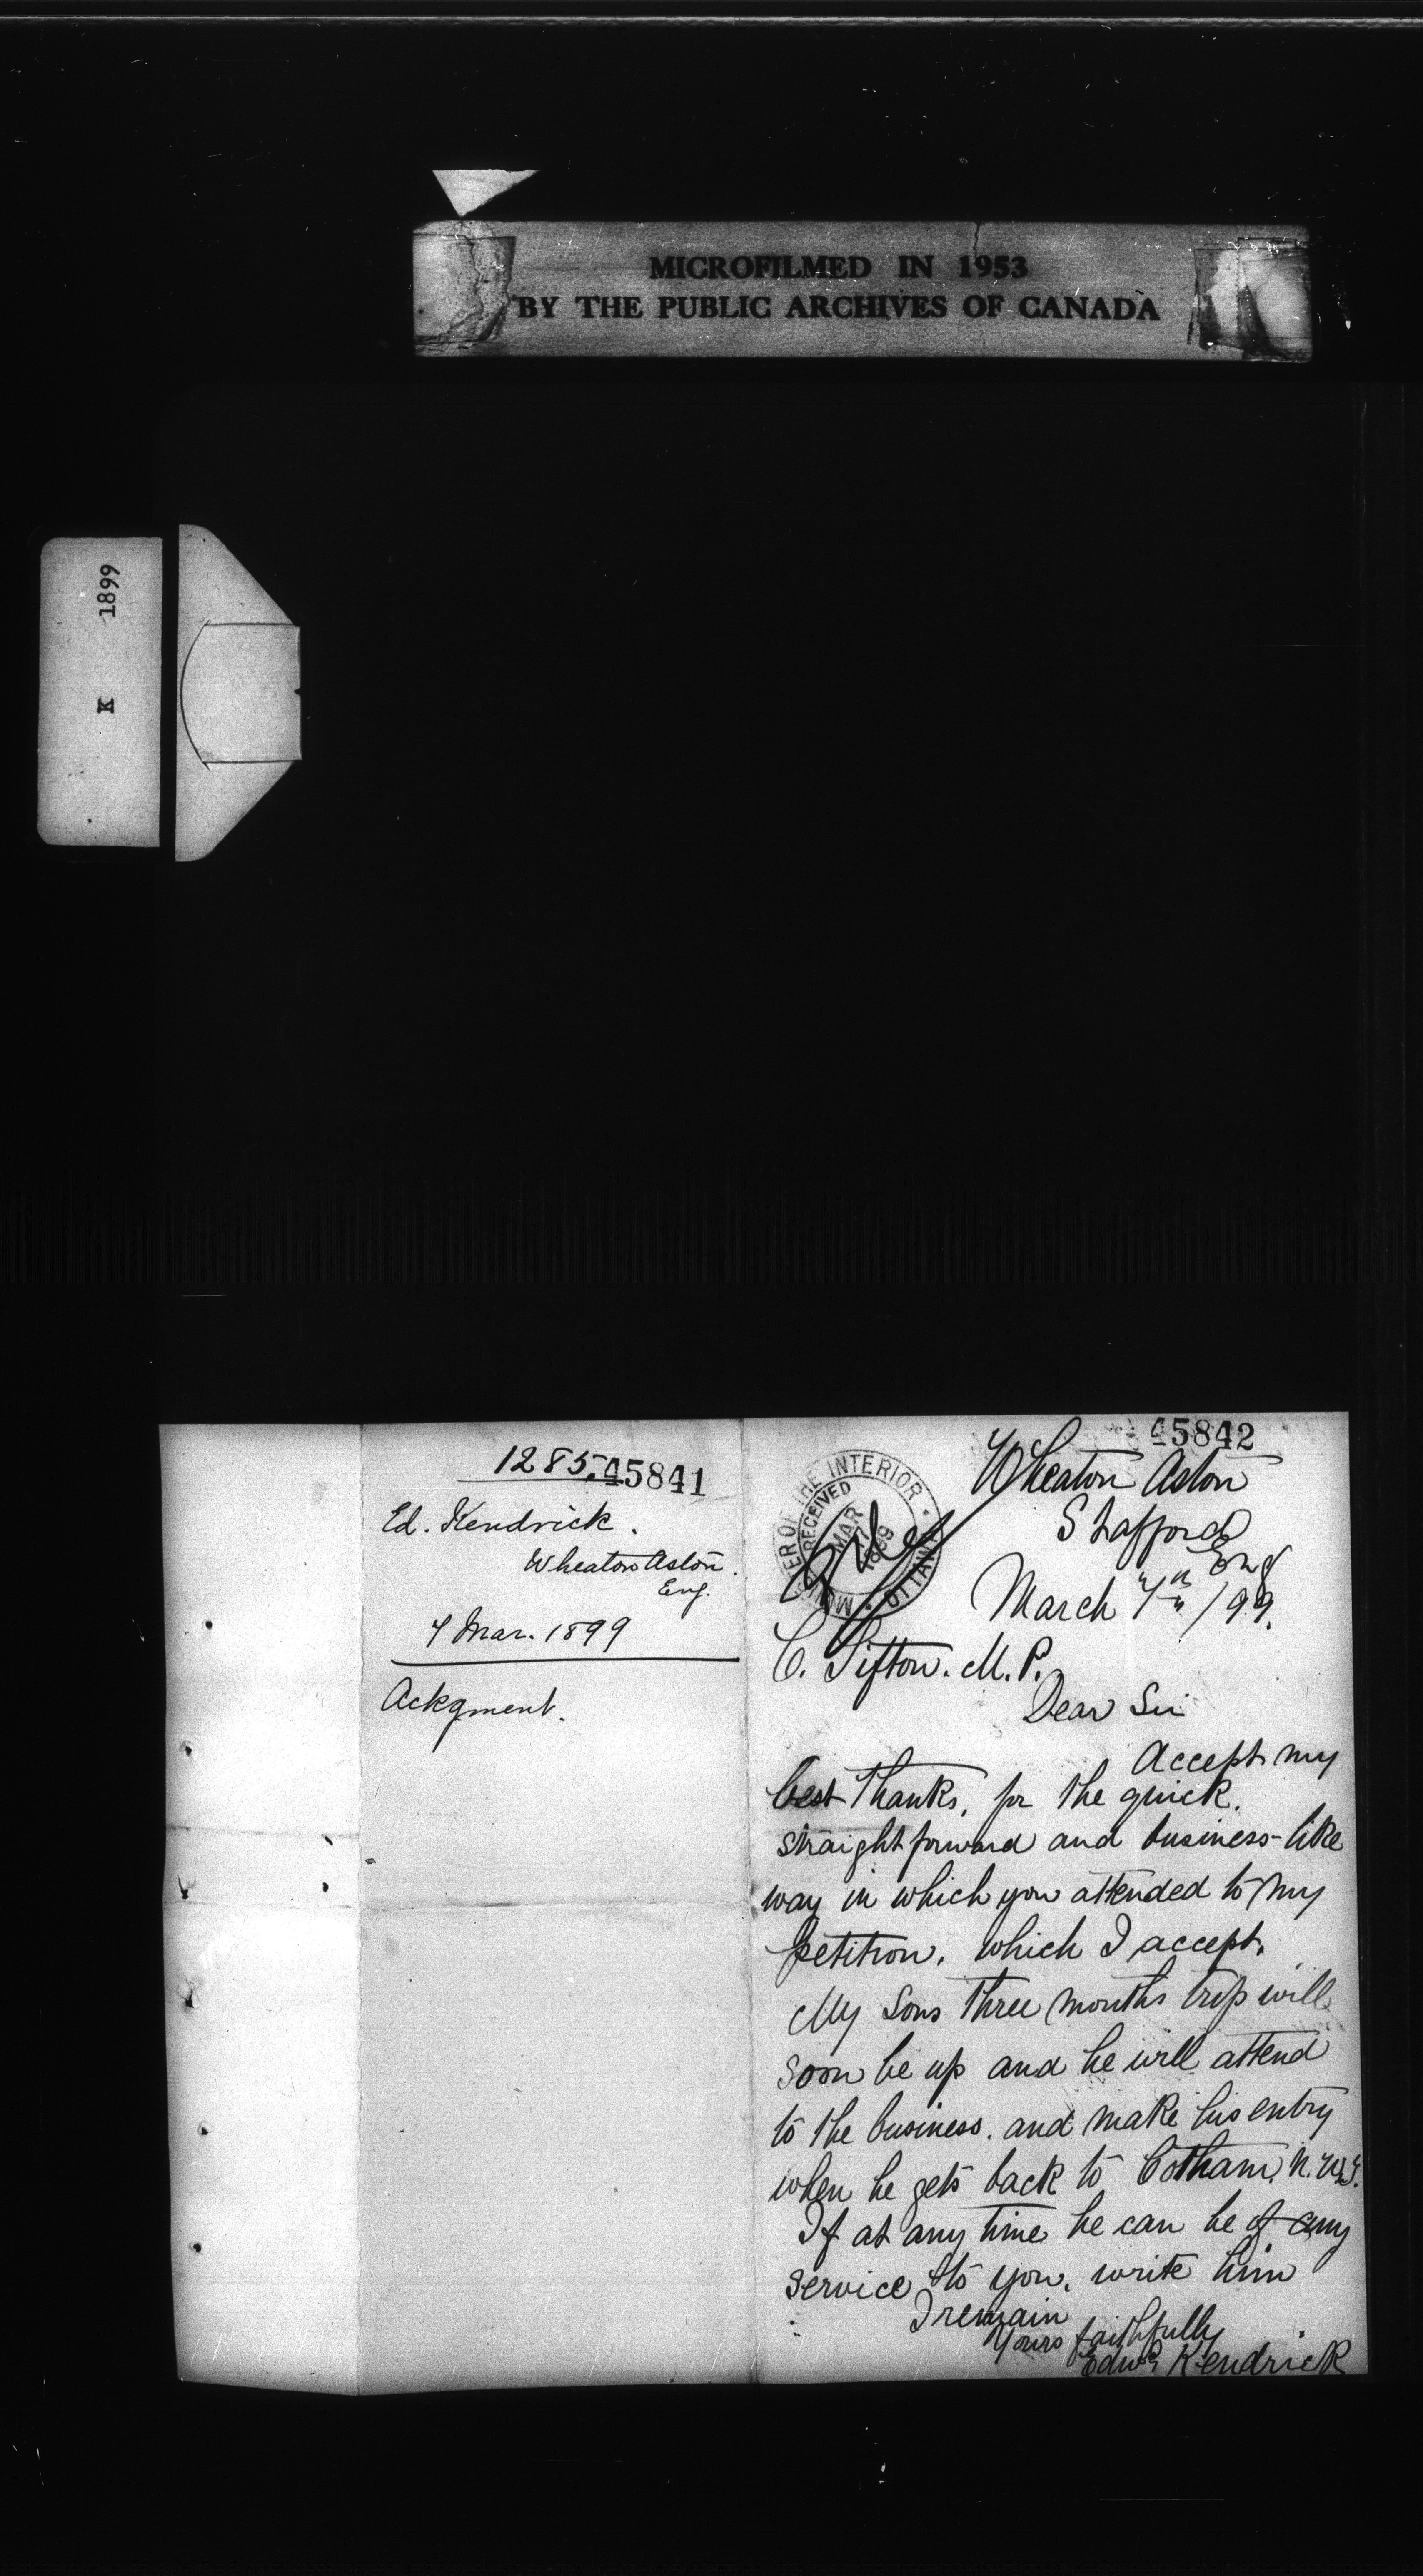 MICROFILMED IN 1953
BY THE PUBLIC ARCHIVES OF CANADA
K 1899
1285.
45841
Ed. Kendrick.
Wheaton Aston.
Eng.
7 Mar. 1899
Ackgment.
45842
MINISTER OF THE INTERIOR
RECEIVED
MAR
1899
OTTAWA
File
Wheaton Aston
Stafford
Eng
March 7th /99.
C. Sifton. M.P.
Dear Sir
Accept my
best thanks, for the quick,
straightforward and business-like
way in which you attended to my
petition, which I accept.
My sons three months trip will
soon be up and he will attend
to the business. and make his entry
when he gets back to Cotham, N.W.T.
If at any time he can be of any
service to you, write him
I remain
Yours faithfully
Edwd Kendrick